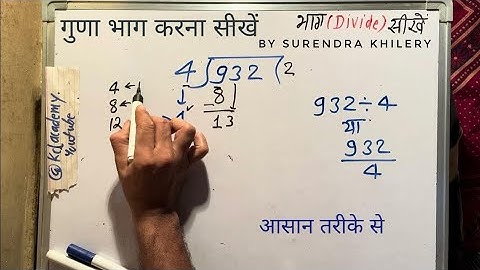 गुणा भाग करना सीखें
भाग (Divide) सीखें
BY SURENDRA KHILERY
4 932 2
4 ← 1
8 ←
12
8
13
932 ÷ 4
या
932
4
@Kd academy
Youtube
आसान तरीके से